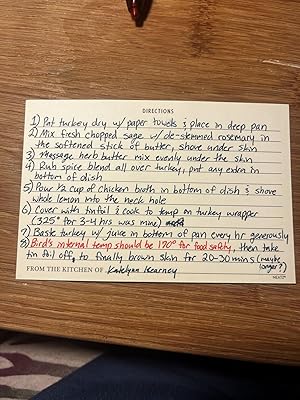 DIRECTIONS
1) Pat turkey dry w/ paper towels & place in deep pan
2) Mix fresh chopped sage w/ de-stemmed rosemary in
the softened stick of butter, shove under skin
3) Massage herb butter mix evenly under the skin
4) Rub spice blend all over turkey, put any extra in
bottom of dish
5) Pour ½ cup of chicken broth in bottom of dish & shove
whole lemon into the neck hole
6) Cover with tinfoil & cook to temp on turkey wrapper
(325° for 3-4 hrs was mine)
7) Baste turkey w/ juice in bottom of pan every hr generously
8) Bird's internal temp should be 170° for food safety, then take
tin foil off, to finally brown skin for 20-30 mins (maybe
longer?)
FROM THE KITCHEN OF: Katelynn Kearney